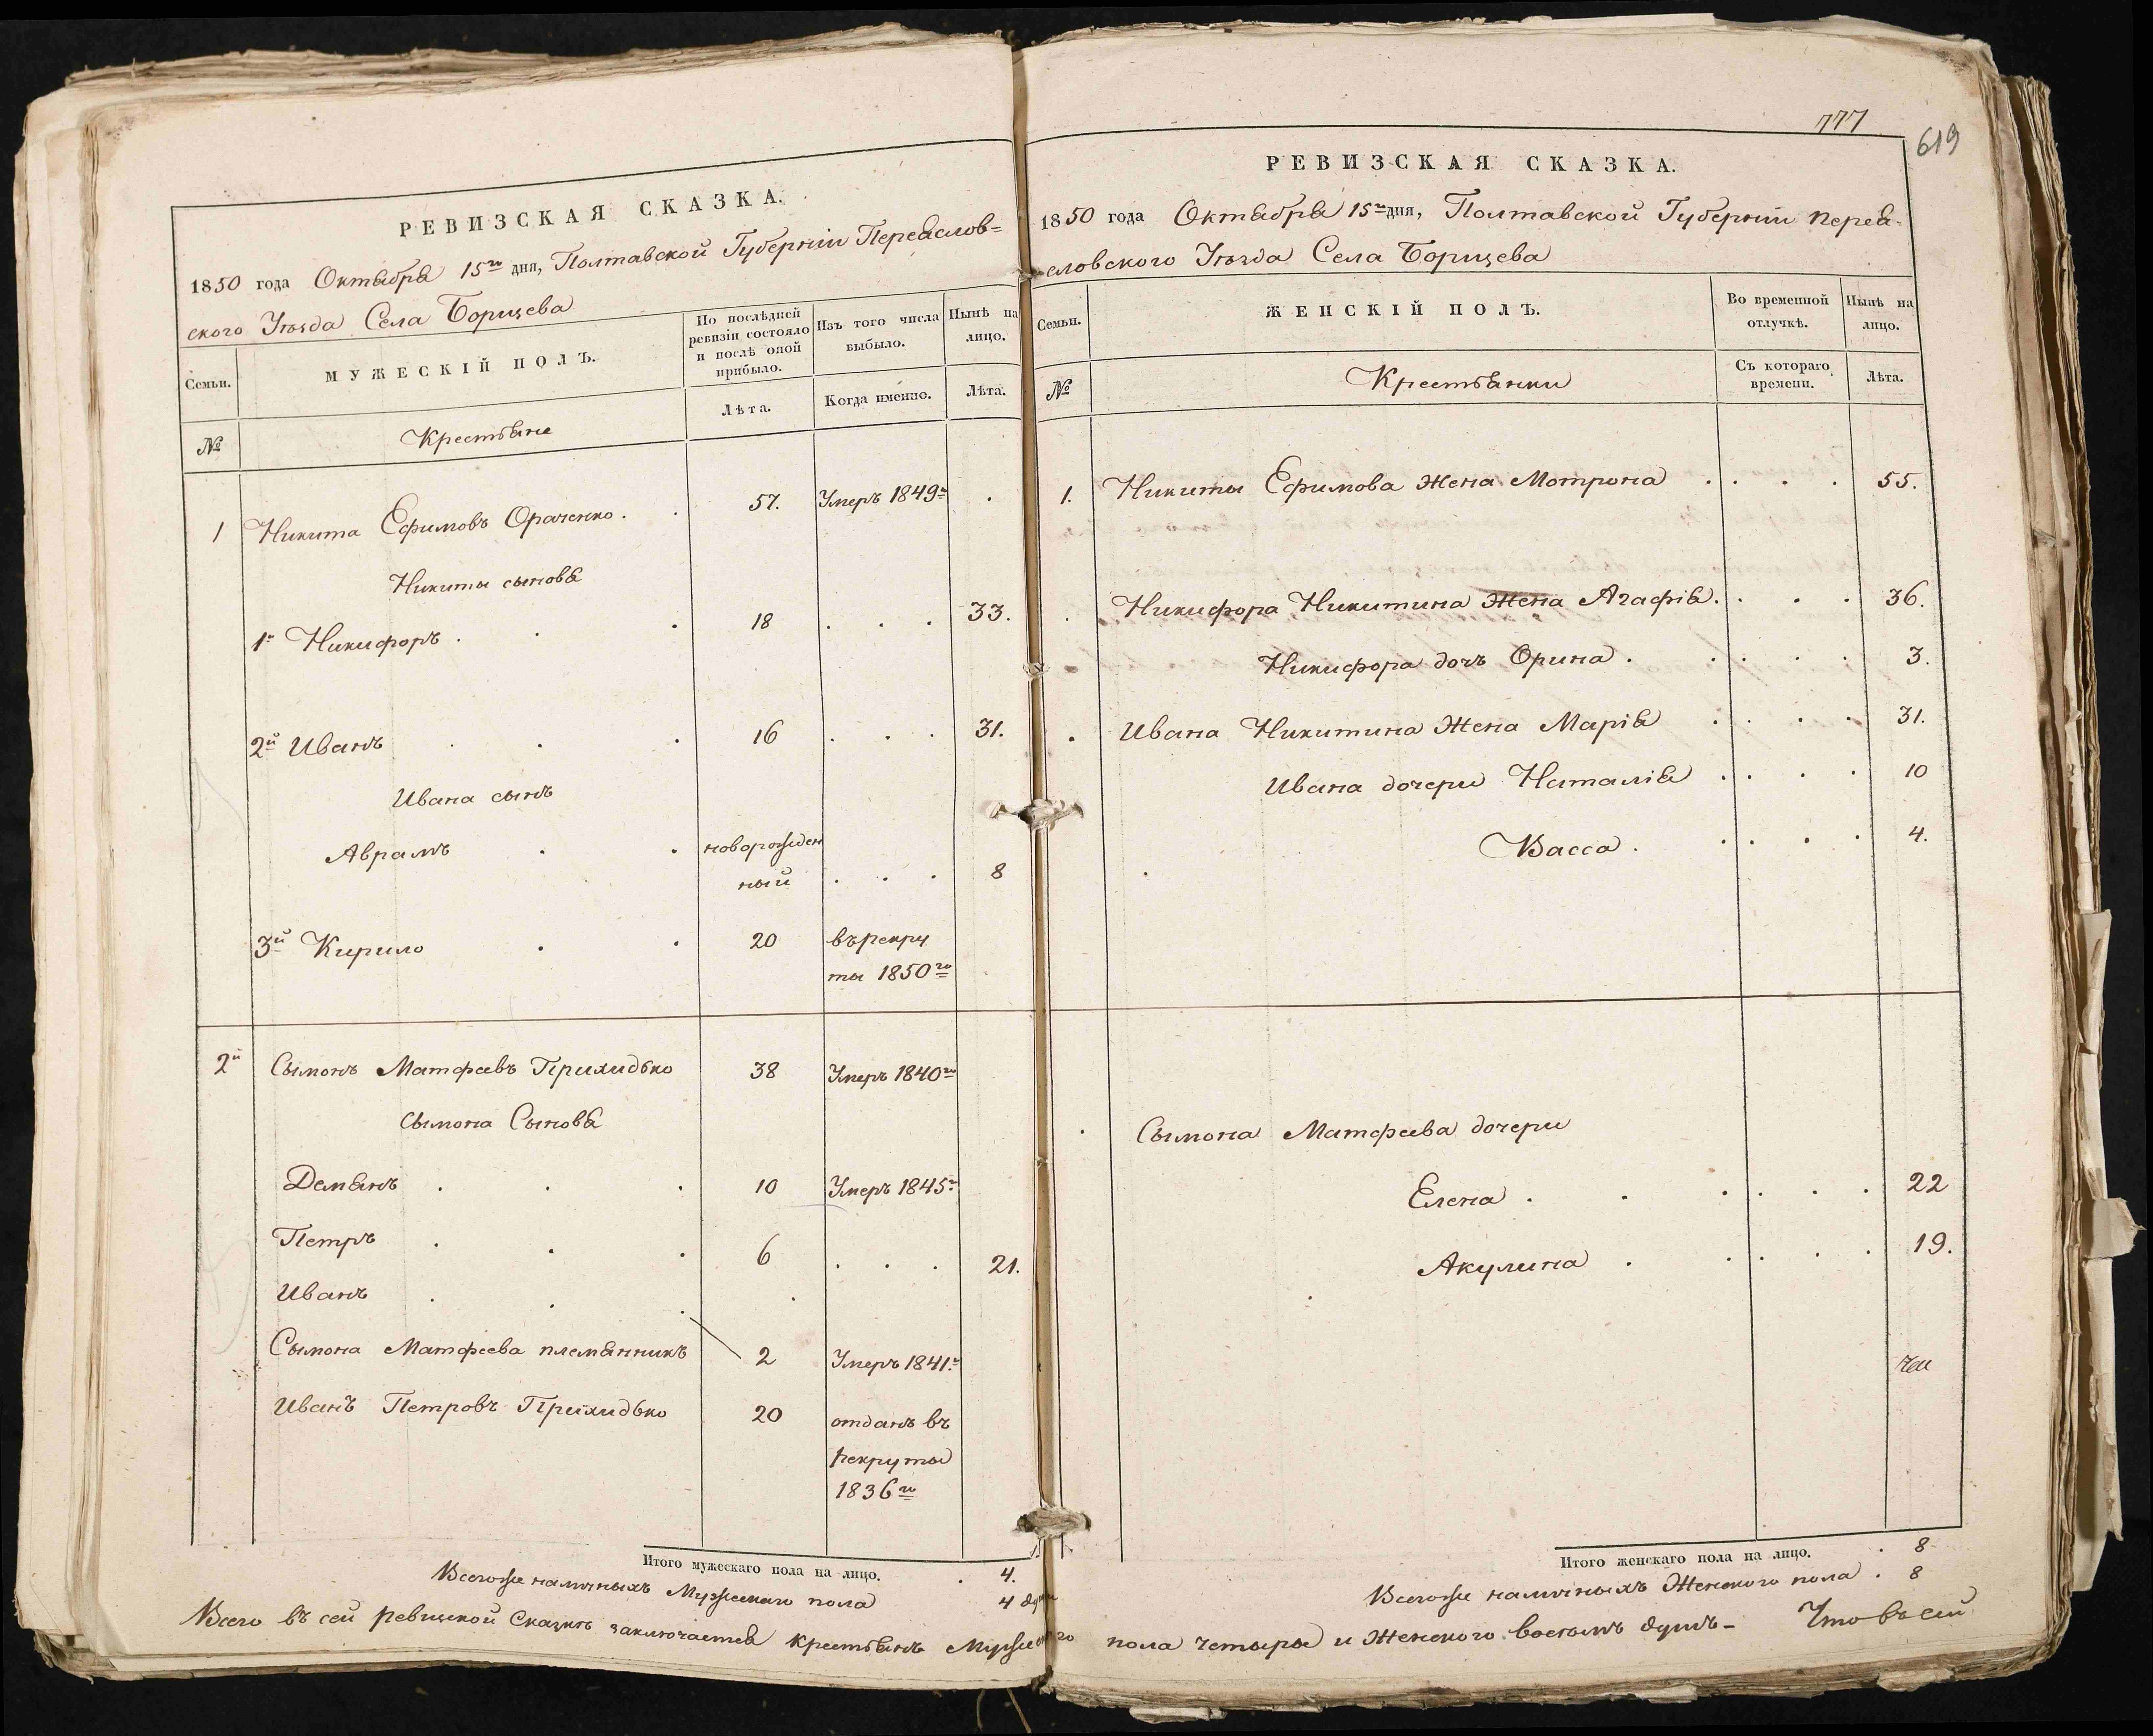 РЕВИЗСКАЯ СКАЗКА.
1850 года Октября 15го дня, Полтавской Губерніи Переяслов=
ского Уѣзда Села Борищева
Семьи.
МУЖЕСКІЙ ПОЛЪ.
По послѣдней ревизіи состояло и послѣ оной прибыло.
Изъ того числа выбыло.
Нынѣ на лицо.
№
Крестьяне
Лѣта.
Когда именно.
Лѣта.
1 Никита Ефимовъ Ораченко . . 57. Умеръ 1849го .
Никиты сыновья
1й Никифоръ . . . 18 . . . 33.
2й Иванъ . . . 16 . . . 31.
Ивана сынъ
Аврамъ . . новорожден
ный . . . 8
3й Кирило . . 20 въ рекру
ты 1850го
2й Сымонъ Матфеевъ Прихидько 38 Умеръ 1840го
Сымона Сыновья
Демянъ . . . 10 Умеръ 1845го
Петръ . . . 6 . . . 21.
Иванъ . . .
Сымона Матфеева племянникъ 2 Умеръ 1841го
Иванъ Петровъ Прихидько 20 отданъ въ
рекруты
1836го
Итого мужескаго пола на лицо. . 4.
Всего же наличныхъ Мужескаго пола 4 души
Всего въ сей ревизской Сказкѣ заключается крестьянъ Мужеского
777
619
РЕВИЗСКАЯ СКАЗКА.
1850 года Октября 15го дня, Полтавской Губерніи Перея-
словского Уѣзда Села Борищева
Семьи.
ЖЕНСКІЙ ПОЛЪ.
Во временной отлучкѣ.
Нынѣ на лицо.
№
Крестьянки
Съ котораго времени.
Лѣта.
1. Никиты Ефимова Жена Мотрона . . . . 55.
Никифора Никитина Жена Агафія . . . . 36.
Никифора дочь Орина . . . . . 3.
Ивана Никитина Жена Марія . . . . 31.
Ивана дочери Наталія . . . . 10
Васса . . . . . 4.
Сымона Матфеева дочери
Елена . . . . . . 22
Акулина . . . . . 19.
Итого женскаго пола на лицо. . 8
Всего же наличныхъ Женского пола . 8
пола четыры и Женского восемь душъ- Что въ сей